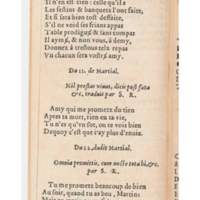 Il n'en est rien : celle qu'il a
Les festins & banquets l'ont faite,
Et si sera bien tost deffaite,
S'il ne void ses frians appas
Table prodigue & sans compas
Il ayme, & non vous, à demy,
Donnez à trestous tels repas
Vn chacun sera vostre amy.
Du 12. de Martial.
Nil prestas viuus, dicis post fata
&c. traduit par S. R.
Amy qui me promets du tien
Apres ta mort, rien en ta vie,
Tu n'es qu'vn sot, ou te vois bien
Dequoy c'est que i'ay plus d'enuie.
Du 12. dudit Martial.
Omnia promittis, cum nocte tota bi. &c.
par S. R.
Tu me promets beaucoup de bien
Au soir, quand tu as beu, Martin: